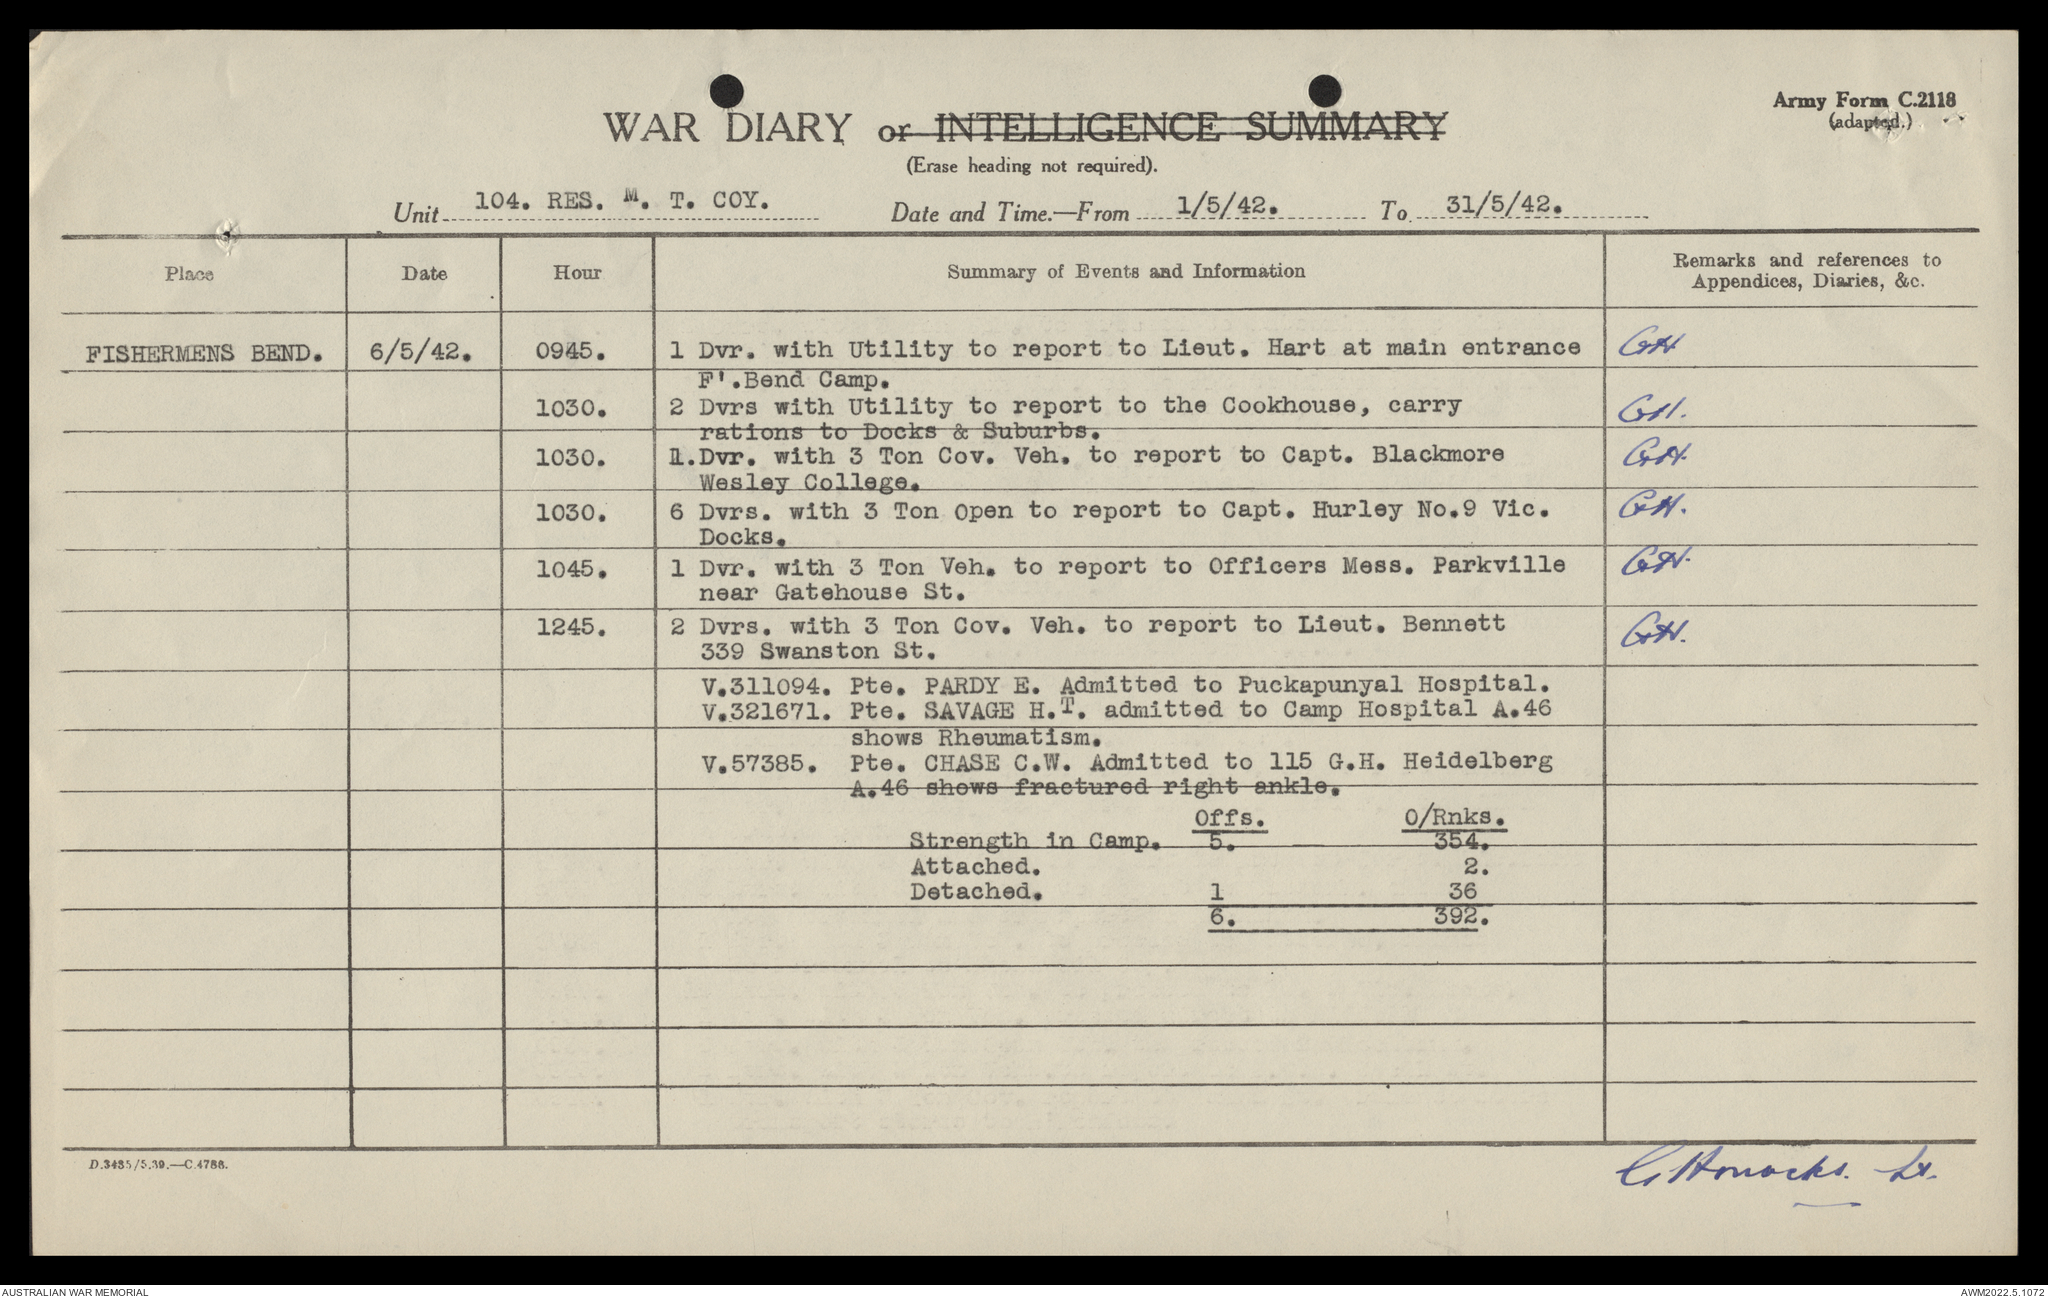 Army Form C.2118
(adapted.)
WAR DIARY or INTELLIGENCE SUMMARY
(Erase heading not required).
Unit 104. RES. M. T. COY. Date and Time.—From 1/5/42. To 31/5/42.
Place Date Hour Summary of Events and Information Remarks and references to Appendices, Diaries, &c.
FISHERMENS BEND. 6/5/42. 0945. 1 Dvr. with Utility to report to Lieut. Hart at main entrance GH
F'.Bend Camp.
1030. 2 Dvrs with Utility to report to the Cookhouse, carry GH.
rations to Docks & Suburbs.
1030. 1.Dvr. with 3 Ton Cov. Veh. to report to Capt. Blackmore GH.
Wesley College.
1030. 6 Dvrs. with 3 Ton Open to report to Capt. Hurley No.9 Vic. GH.
Docks.
1045. 1 Dvr. with 3 Ton Veh. to report to Officers Mess. Parkville GH.
near Gatehouse St.
1245. 2 Dvrs. with 3 Ton Cov. Veh. to report to Lieut. Bennett GH.
339 Swanston St.
V.311094. Pte. PARDY E. Admitted to Puckapunyal Hospital.
V.321671. Pte. SAVAGE H.T. admitted to Camp Hospital A.46
shows Rheumatism.
V.57385. Pte. CHASE C.W. Admitted to 115 G.H. Heidelberg
A.46 shows fractured right ankle.
Offs. O/Rnks.
Strength in Camp. 5. 354.
Attached. 2.
Detached. 1 36
6. 392.
D.3485/5.39.—C.4788.
Lt.
AUSTRALIAN WAR MEMORIAL AWM2022.5.1072